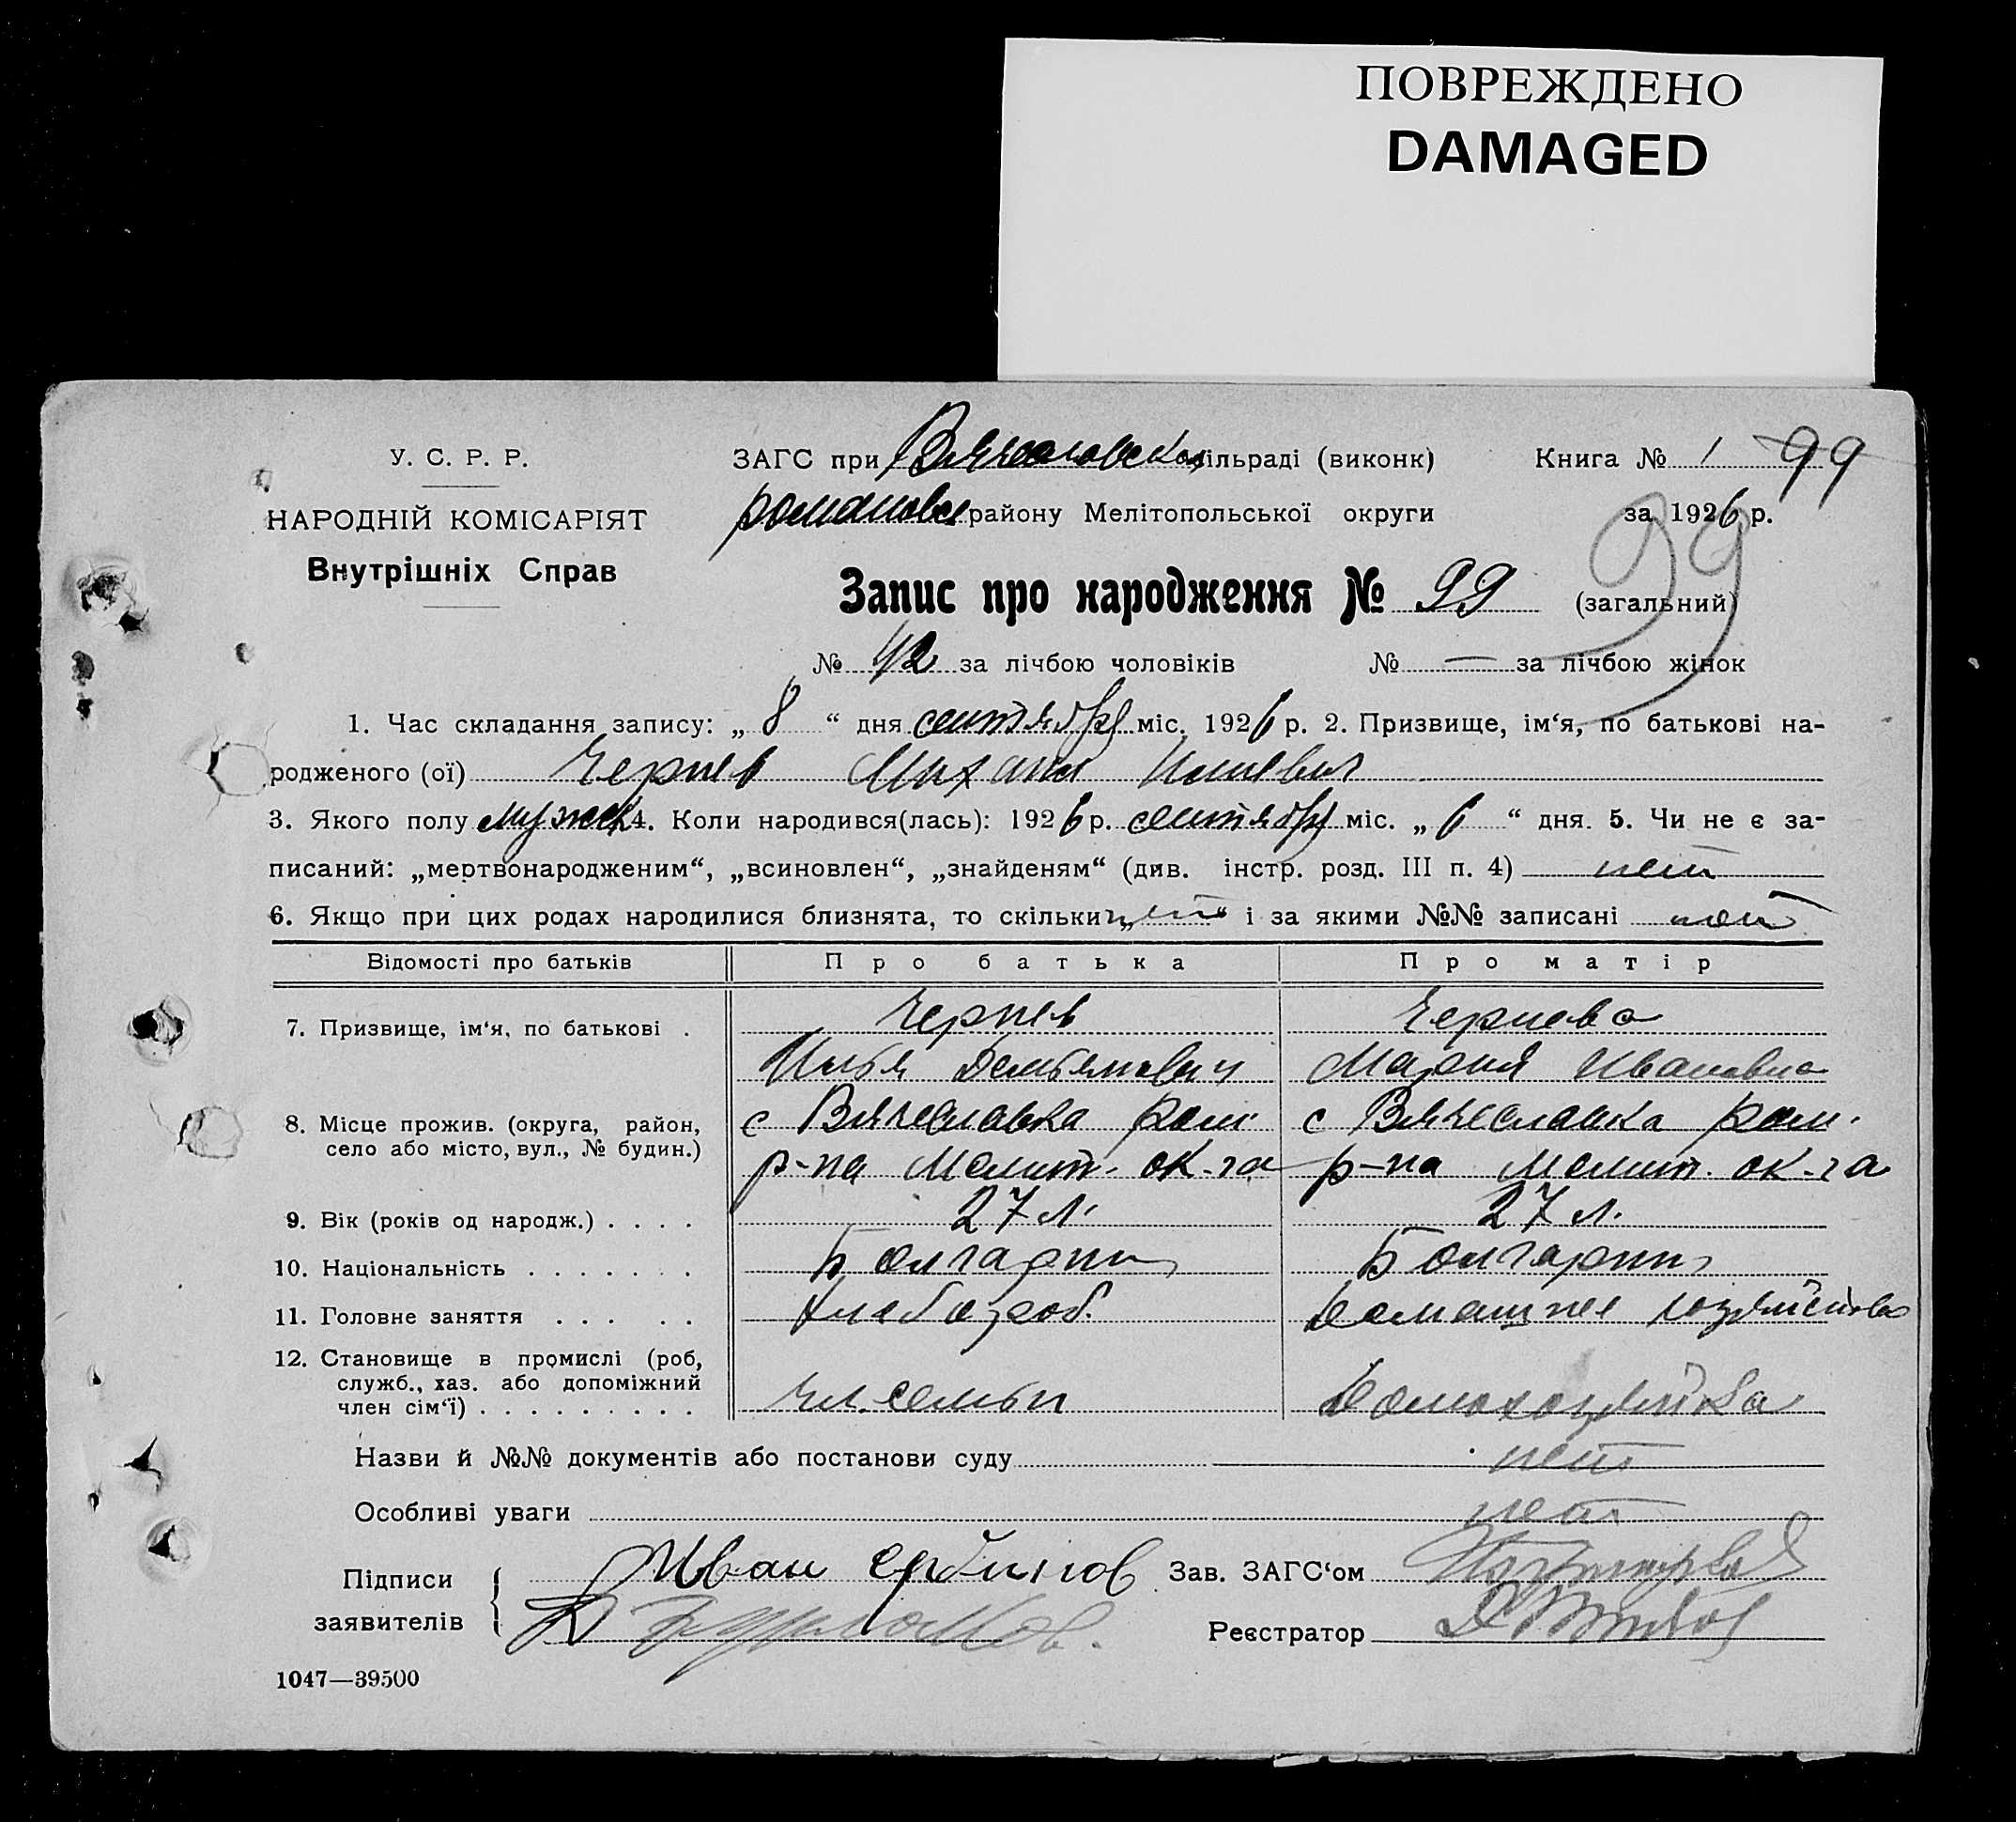 ПОВРЕЖДЕНО
DAMAGED
У. С. Р. Р.
НАРОДНІЙ КОМІСАРІЯТ
Внутрішніх Справ
ЗАГС при Вячеславской сільраді (виконк)
Книга № 1 99
романовск району Мелітопольської округи
за 1926 р.
99
Запис про народження № 99 (загальний)
№ 42 за лічбою чоловіків № — за лічбою жінок
1. Час складання запису: „ 8 “ дня сентября міс. 1926 р. 2. Призвище, ім‘я, по батькові на-
родженого (ої) Чернев Михаил Ильевич
3. Якого полу мужск 4. Коли народився(лась): 1926 р. сентября міс. „ 6 “ дня. 5. Чи не є за-
писаний: „мертвонародженим“, „всиновлен“, „знайденям“ (див. інстр. розд. III п. 4) нет
6. Якщо при цих родах народилися близнята, то скільки „нет“ і за якими №№ записані нет
Відомості про батьків Про батька Про матір
7. Призвище, ім‘я, по батькові . Чернев Чернева
Илья Демьянович Мария Ивановна
8. Місце прожив. (округа, район, село або місто, вул., № будин.) с Вячеславка Ром. с Вячеславка Ром.
р-на Мелит. ок-га р-на Мелит. ок-га
9. Вік (років од народж.) . . . . 27 л. 27 л.
10. Національність . . . . . . . Болгарин Болгарин
11. Головне заняття . . . . . Хлебороб. Домашнее хозяйство
12. Становище в промислі (роб, служб., хаз. або допоміжний член сім‘ї) . . . . . . . . . Чл. семьи Домохозяйка
Назви й №№ документів або постанови суду нет
Особливі уваги нет
Підписи заявителів { Иван Зав. ЗАГС‘ом
Реєстратор
1047—39500